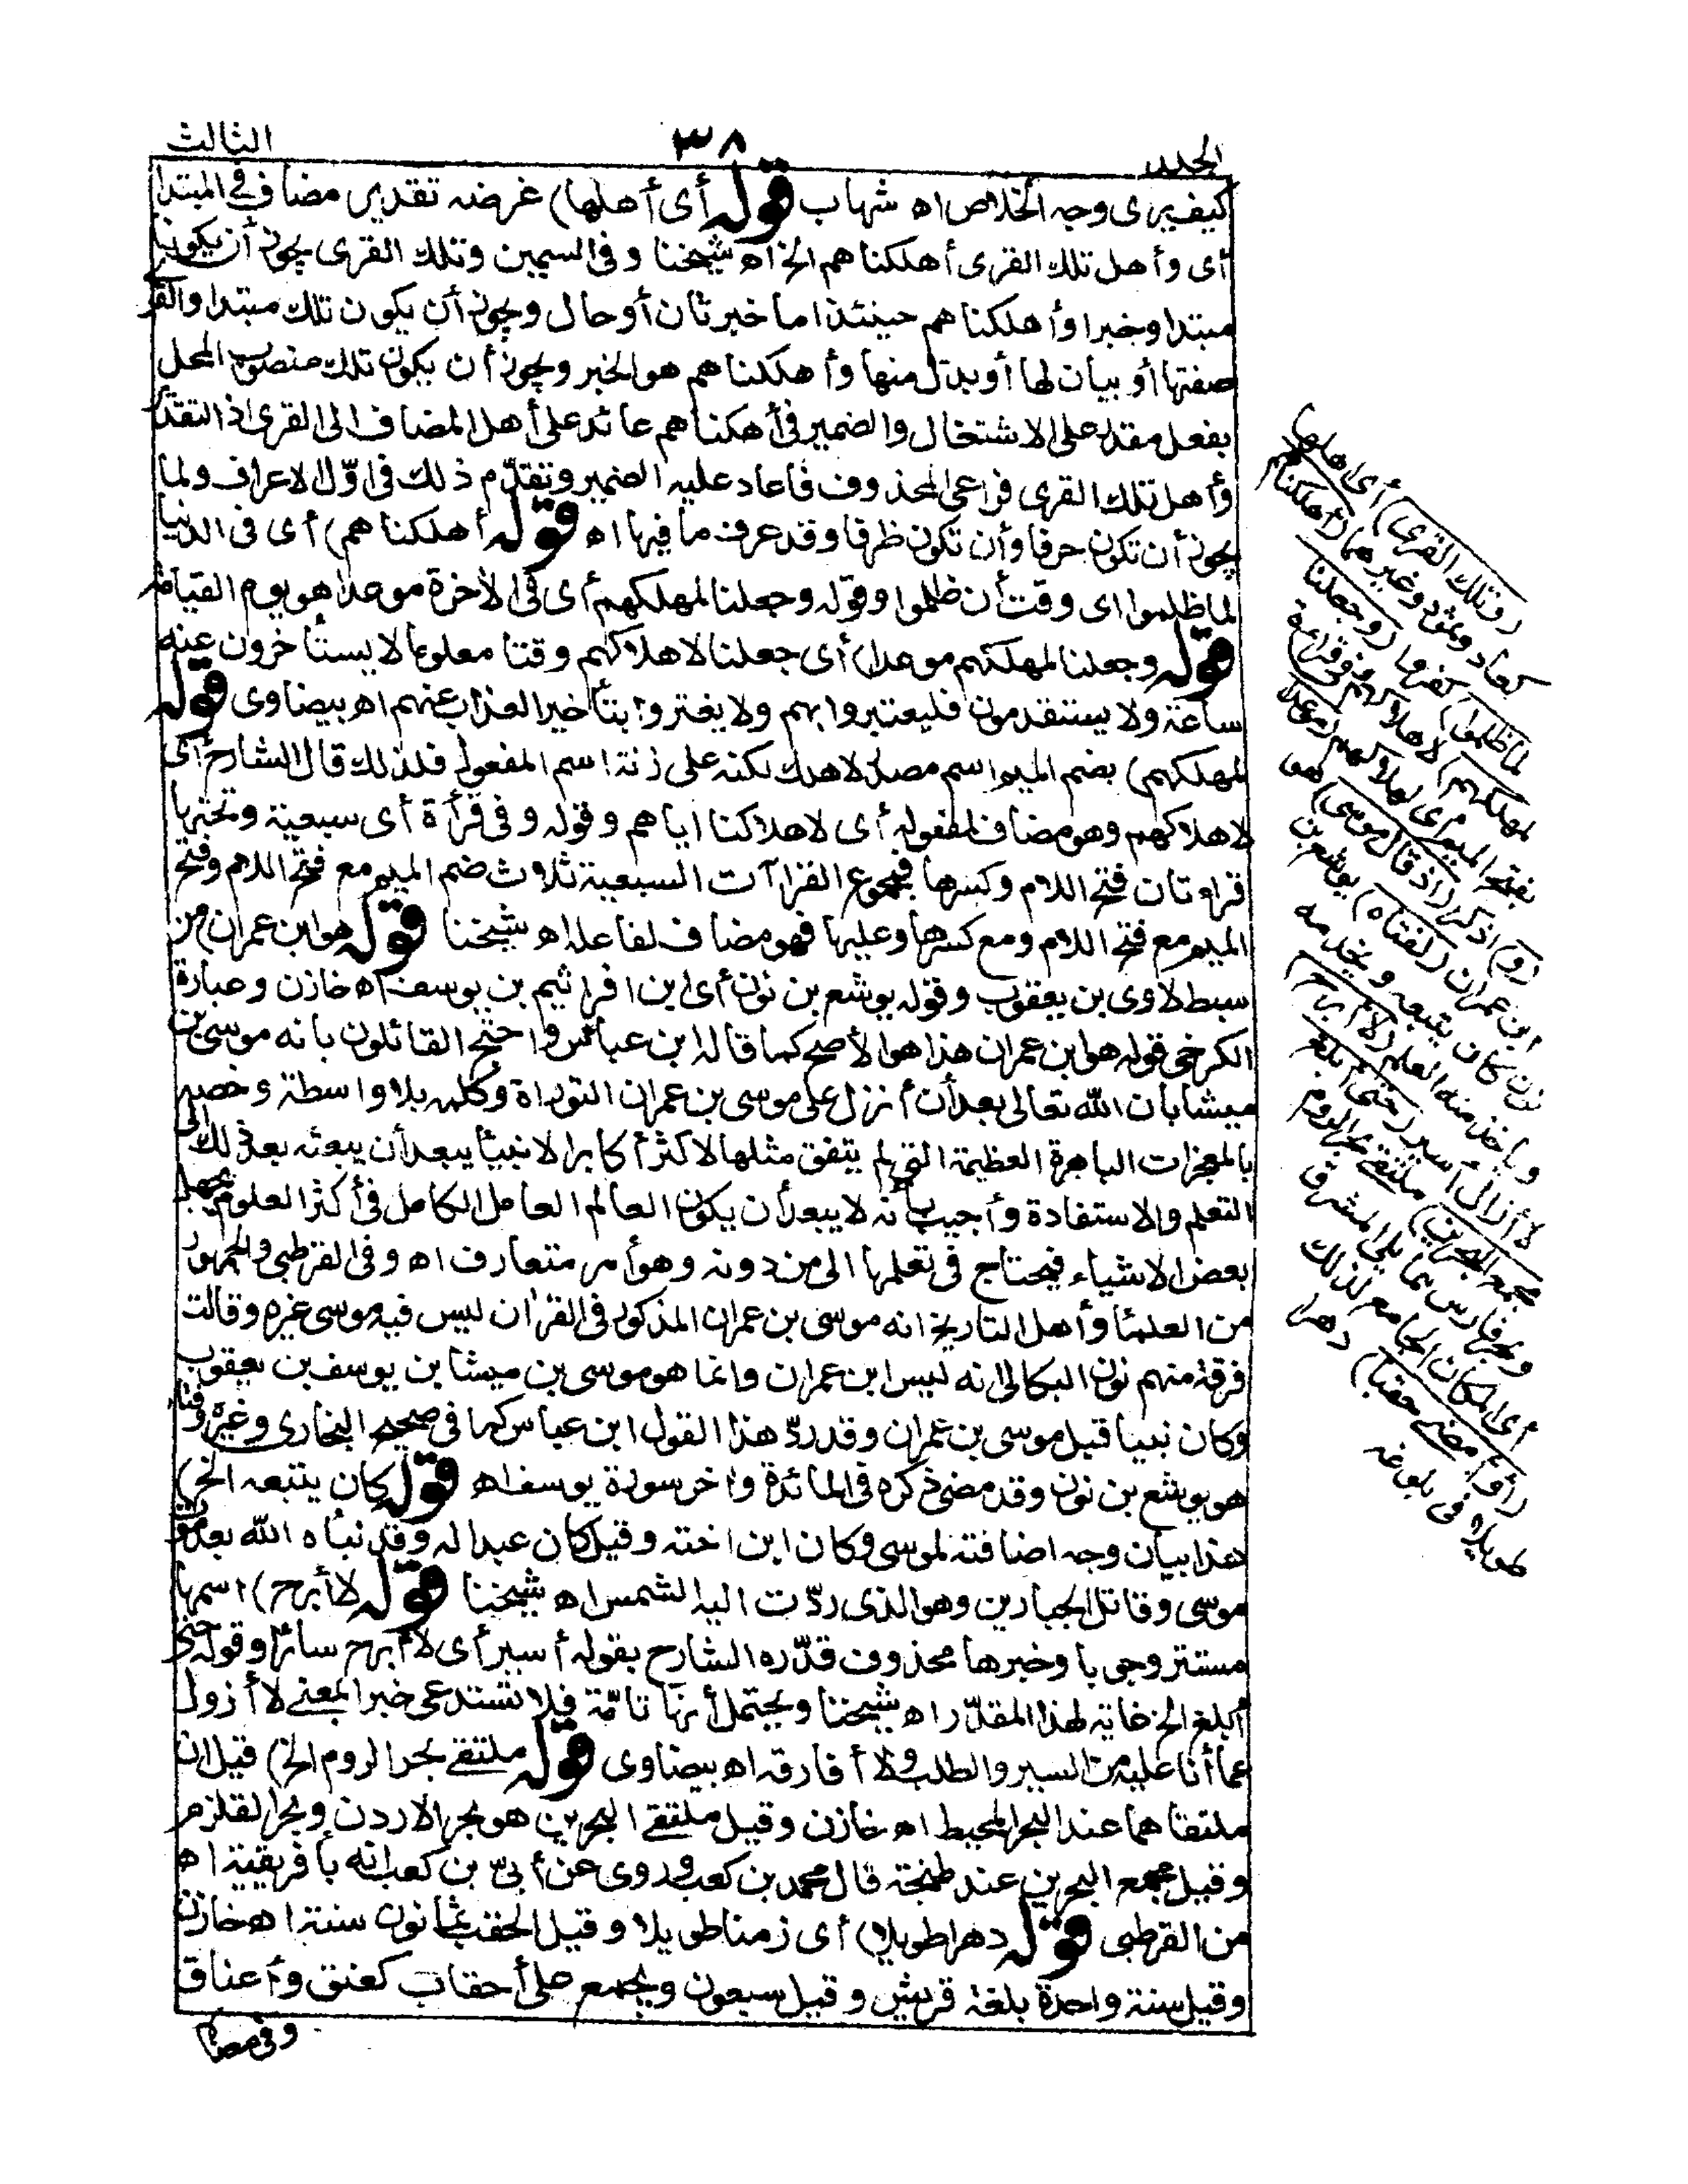 الجلد
٣٨
الثالث
كيف يرى وجه الخلاص اه شهاب قوله أى أهلها) غرضه تقدير مضاف فى المبتدا
أى وأهل تلك القرى أهلكناهم الخ اه شيخنا وفى السمين وتلك القرى يجوز أن يكونا
مبتدا وخبرا وأهلكناهم حينئذ اما خبر ثان أو حال ويجوز أن يكون تلك مبتدا والقر
صفتها أو بيان لها أو بدل منها وأهلكناهم هو الخبر ويجوز أن يكون تلك منصوب المحل
بفعل مقدر على الاشتغال والضمير فى أهلكناهم عائد على أهل المضاف الى القرى اذ التقدير
وأهل تلك القرى فراعى المحذوف فاعاد عليه الضمير وتقدّم ذلك فى اوّل الاعراف ولما
يجوز أن تكون حرفا وأن تكون ظرفا وقد عرف ما فيها اه قوله أهلكناهم) أى فى الدنيا
لما ظلموا اى وقت أن ظلموا وقوله وجعلنا لمهلكهم أى فى الأخرة موعدا هو يوم القيامة
قوله وجعلنا لمهلكهم موعدا) أى جعلنا لاهلاكهم وقتا معلوما لا يستأخرون عنه
ساعة ولا يستقدمون فليعتبروا بهم ولا يغتروا بتأخير العذاب عنهم اه بيضاوى قوله
لمهلكهم) بضم الميم اسم مصدر لاهلك لكنه على زنة اسم المفعول فلذلك قال الشارح أى
لاهلاكهم وهو مضاف لمفعوله أى لاهلاكنا اياهم وقوله وفى قرأة أى سبعية وتحتها
قراءتان فتح اللام وكسرها فمجموع القراآت السبعية ثلاث ضم الميم مع فتح اللام وفتح
الميم مع فتح اللام ومع كسرها وعليها فهو مضاف لفاعله اه شيخنا قوله هو ابن عمران) من
سبط لاوى بن يعقوب وقوله يوشع بن نون أى ابن افراثيم بن يوسف اه خازن وعبارة
الكرخى قوله هو ابن عمران هذا هو الأصح كما قاله ابن عباس واحتج القائلون بانه موسى بن
ميشا بان الله تعالى بعد أن أنزل على موسى بن عمران التوراة وكلمه بلا واسطة وخصه
بالمعجزات الباهرة العظيمة التى لم يتفق مثلها لاكثر أكابر الانبيأ يبعد أن يبعثه بعد ذلك الى
التعلم والاستفادة وأجيب بأنه لا يبعد أن يكون العالم العامل الكامل فى أكثر العلوم يجهل
بعض الاشياء فيحتاج فى تعلمها الى من دونه وهو أمر متعارف اه وفى القرطبى والجمهور
من العلمأ وأهل التاريخ انه موسى بن عمران المذكور فى القرٰان ليس فيه موسى غيره وقالت
فرقة منهم نون البكالى انه ليس ابن عمران وانما هو موسى بن ميشا بن يوسف بن يعقوب
وكان نبيا قبل موسى بن عمران وقد ردّ هذا القول ابن عباس كما فى صحيح البخارى وغيره وفتاه
هو يوشع بن نون وقد مضى ذكره فى المائدة واخر سورة يوسف اه قوله كان يتبعه الخ)
هذا بيان وجه اضافته لموسى وكان ابن اخته وقيل كان عبدا له وقد نبأه الله بعد موت
موسى وقاتل الجبارين وهو الذى ردّت اليه الشمس اه شيخنا قوله لا أبرح) اسمها
مستتر وجوبا وخبرها محذوف قدّره الشارح بقوله أسير أى لا أبرح سائرا وقوله حتى
أبلغ الخ غاية لهذا المقدّر اه شيخنا ويحتمل أنها تامّة فلا تستدعى خبرا لمعنى لا أزول
عما أنا عليه من السير والطلب ولا أفارقه اه بيضاوى قوله ملتقى بحر الروم الخ) قيل ان
ملتقاهما عند البحر المحيط اه خازن وقيل ملتقى البحرين هو بحر الاردن وبحر القلزم
وقيل مجمع البحرين عند طنجة قال محمد بن كعب وروى عن أبىّ بن كعب انه بأفريقية اه
من القرطبى قوله دهرا طويلا) أى زمنا طويلا وقيل الحقب ثمانون سنة اه خازن
وقيل سنة واحدة بلغة قريش وقيل سبعون ويجمع على أحقاب كعنق وأعناق
وفى
(وتلك القرى) أى أهلها
كعاد وثمود وغيرهما (أهلكناهم
لما ظلموا) كفروا (وجعلنا
لمهلكهم) لاهلاكهم وفى قراءة
بفتح الميم أى لهلاكهم (موعدا
و) اذكر (اذ قال موسى) هو
ابن عمران (لفتاه) يوشع بن
نون كان يتبعه ويخدمه
وياخذ منه العلم (لا أبرح)
لا أزال أسير (حتى أبلغ
مجمع البحرين) ملتقى بحر الروم
وبحر فارس مما يلى المشرق
أى المكان الجامع لذلك
(أو أمضى حقبا) دهرا
طويلا فى بلوغه